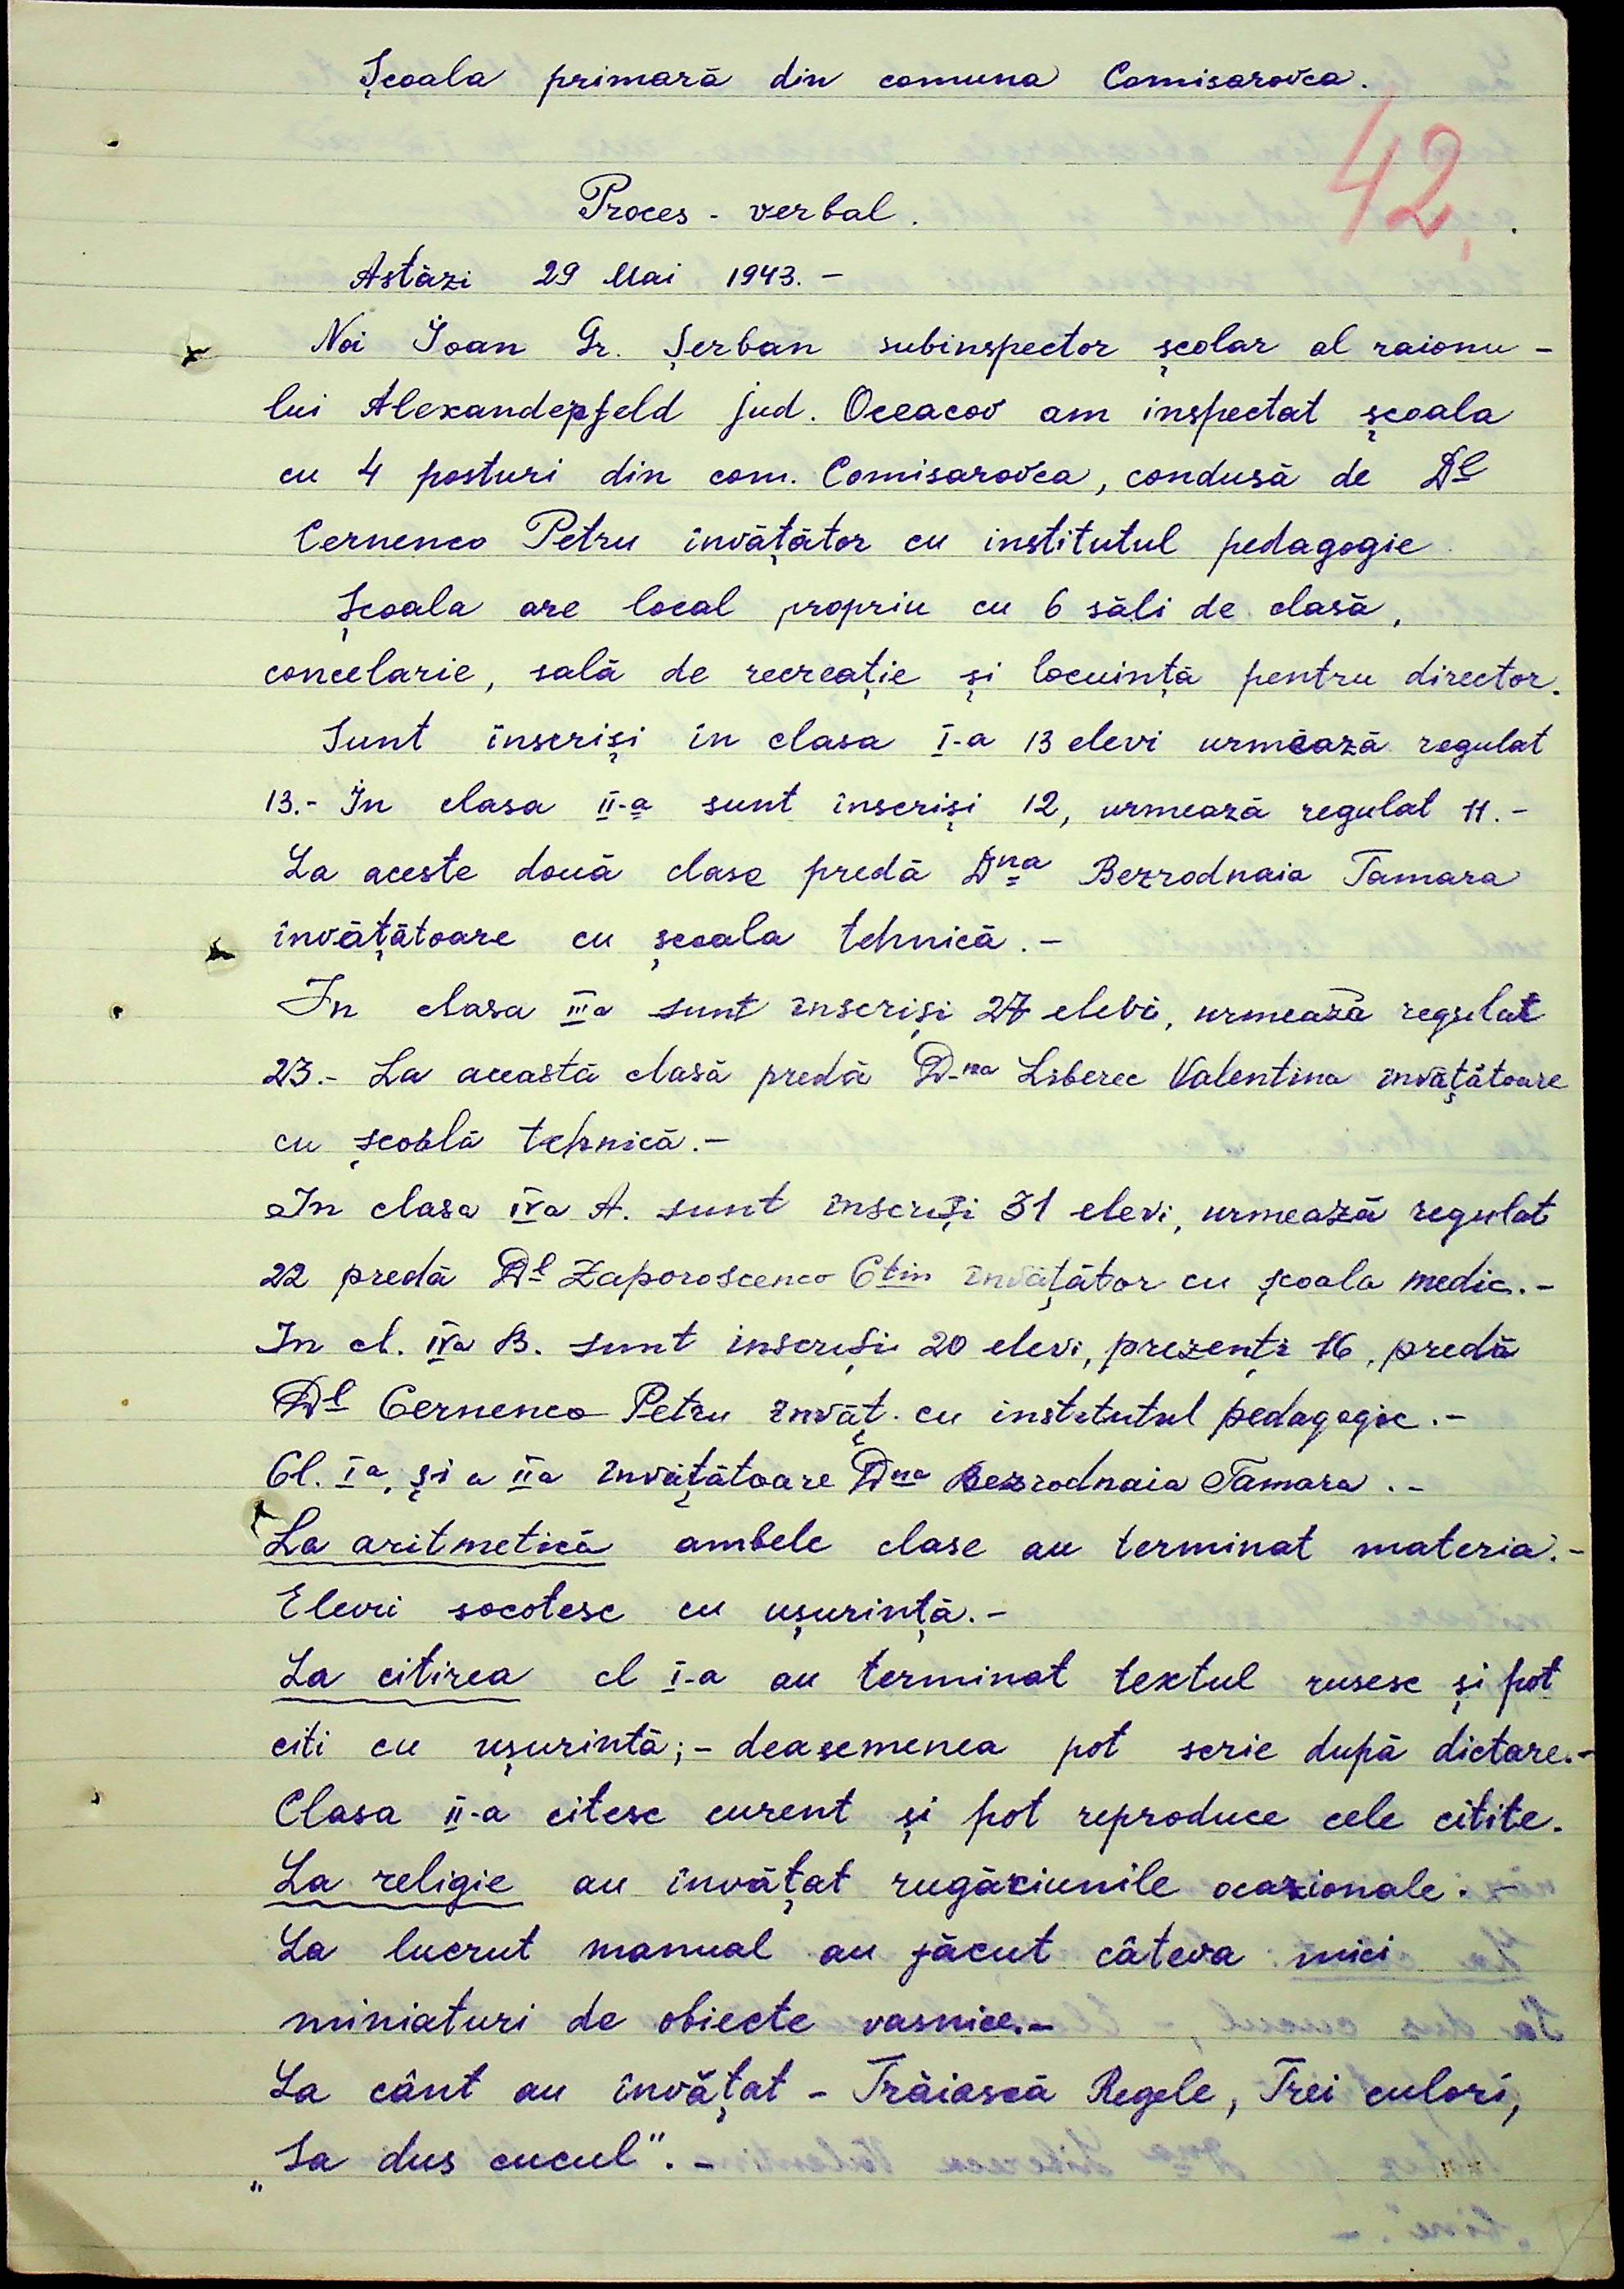 Școala primară din comuna Comisarovca.
42.
Proces - verbal.
Astăzi 29 Mai 1943. -
Noi Ioan Gr. Șerban subinspector școlar al raionu -
lui Alexanderfeld jud. Oceacov am inspectat școala
cu 4 posturi din com. Comisarovca, condusă de Dl
Cernenco Petru învățător cu institutul pedagogic
Școala are local propriu cu 6 săli de clasă,
concelarie, sală de recreație și locuință pentru director.
Sunt înscriși în clasa I-a 13 elevi urmează regulat
13.- In clasa II-a sunt înscriși 12, urmează regulat 11.-
La aceste două clase predă Dna Bezrodnaia Tamara
învățătoare cu școala tehnică.-
In clasa IIIa sunt înscriși 27 elevi, urmează regulat
23.- La această clasă predă D-na Liberec Valentina învățătoare
cu școală tehnică.-
In clasa IVa A. sunt înscriși 31 elevi, urmează regulat
22 predă Dl Zaporoscenco Ctin învățător cu școala medie.-
In cl. IVa B. sunt inscriși 20 elevi, prezenți 16, predă
Dl Cernenco Petru învăț. cu institutul pedagogic.-
Cl. Ia, și a IIa învățătoare Dna Bezrodnaia Tamara.-
La aritmetică ambele clase au terminat materia.-
Elevii socotesc cu ușurință.-
La citirea cl I-a au terminat textul rusesc și pot
citi cu ușurintă;- deasemenea pot scrie după dictare.-
Clasa II-a citesc curent și pot reproduce cele citite.
La religie au învățat rugăciunile ocazionale.-
La lucrut manual au făcut câteva mici
miniaturi de obiecte vasnice.-
La cânt au învățat - Trăiască Regele, Trei culori,
„Sa dus cucul”.-